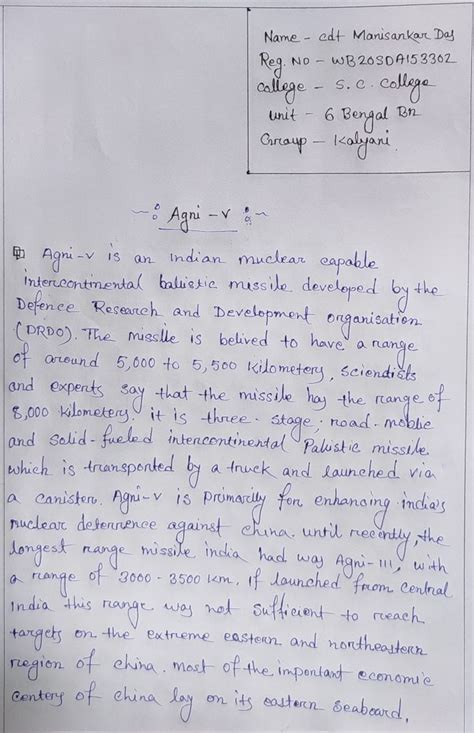 Name - cdt Manisankar Das
Reg. No - WB20SDA153302
college - S. C. College
unit - 6 Bengal Bn
Group - Kalyani
Agni - v
Agni-v is an indian nuclear capable
intercontinental ballistic missile developed by the
Defence Research and Development organisation
(DRDO). The missile is belived to have a range
of around 5,000 to 5,500 kilometers, Scientists
and experts say that the missile has the range of
8,000 kilometers. it is three - stage, road-moblie
and solid-fueled intercontinental Palistic missile
which is transported by a truck and launched via
a canister. Agni-v is primarily for enhancing india's
nuclear deterrence against china. until recently, the
longest range missile india had was Agni-III, with
a range of 3000 - 3500 km, if launched from central
india this range was not sufficient to reach
targets on the extreme eastern and northeastern
region of china. most of the important economic
centers of china lay on its eastern seaboard,